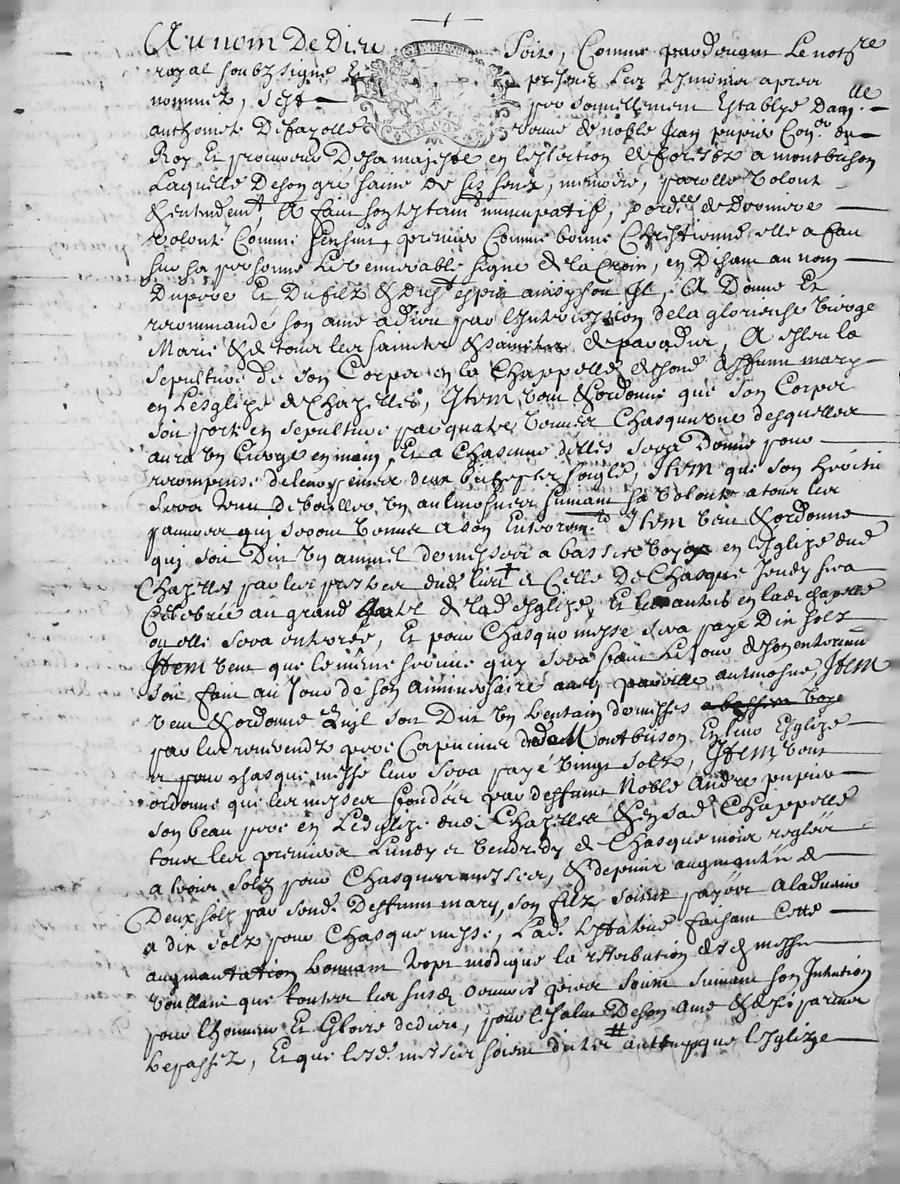 Au nom De Dieu Soit, Comme pardevant Le not.re
royal soubzsigné Et presents Les tesmoins apres
nommez, s'est personnellement Establye Dam.lle
anthoinete Defayolle vefve de noble Jean pupier Con.er du
Roy Et procureur Desa majesté en leslection de forestz a montbrison
Laquelle Deson gré saine de ses sens, memoire, parolle volonté
& entendem.t A fait son testam.t nuncupatif, & de derniere
volonté Comme sensuit, premier Comme bonne Chrestienne elle a fait
sur sa personne Le venerable signe de la Croix, en Disant au nom
Du pere Et Du filz & du st esprit ainsy soit Il, A Donné Et
recommandé son ame a dieu par L'intercession de la glorieuse vierge
Marie & de tous les saincts & sainctes de paradis, A esleu la
sepulture de son Corps en la Chappelle de sond. deffunt mary
en L'esglize de Chazelles, Item veut & ordonne que son Corps
soit porté en sepulture par quatre vefves Chascune desquelles
aura un Cierge en main, Et a Chascune d'elles sera Donné pour
recompense de leur peines deux bichets seigle, Item que son heritier
sera tenu De bailler un aulmosne suivant sa volonté a tous les
pauvres qui seront venus a son Enterrem.t Item veut & ordonne
qui soit Dit un annuel de messes a basse voye en l'esglize dud.
Chazelles par les prestres dud. lieu & Celle De Chasque Jeudy sera
Celebrée au grand hautel de lad. esglize, Et les autres en lad. chapelle
ou elle sera enterrée, Et pour Chasque messe sera payé Dix solz
Item veut que le même service quy sera fait Le jour de son enterrem.t
soit fait au Jour de son anniversaire avec pareille aulmosne, Item
veut & ordonne quil soit Dit un trentain de messes a basse voye
par les reverendz peres Capucins de Montbrison En leur Esglize
et pour chasque messe leur sera payé vingt solz, Item veut
ordonne que les messes fondées par deffunt Noble André pupier
son beau pere en L'esglize dud. Chazelles & en sad. Chappelle
tous les premiers Lundy et vendredy de Chasque mois reglées
a huit solz pour Chasques messes, & depuis augmentée de
Deux solz par sond. Deffunt mary, son filz soient payées a ladvenir
a dix solz pour Chasque messe, Lad. testatrice faisant Cette
augmantation trouvant trop modique la retribution desd. messes
voullant que toutes les susd. oeuvres pies soient suivant son Intention
pour l'honneur Et Gloire de dieu, pour le salut De son ame & de ses parens
trepassez, Et que lesd. messes soient dictes # autemps que l'esglize